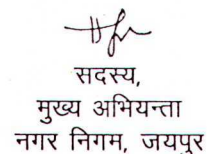 सदस्य,
मुख्य अभियन्ता
नगर निगम, जयपुर